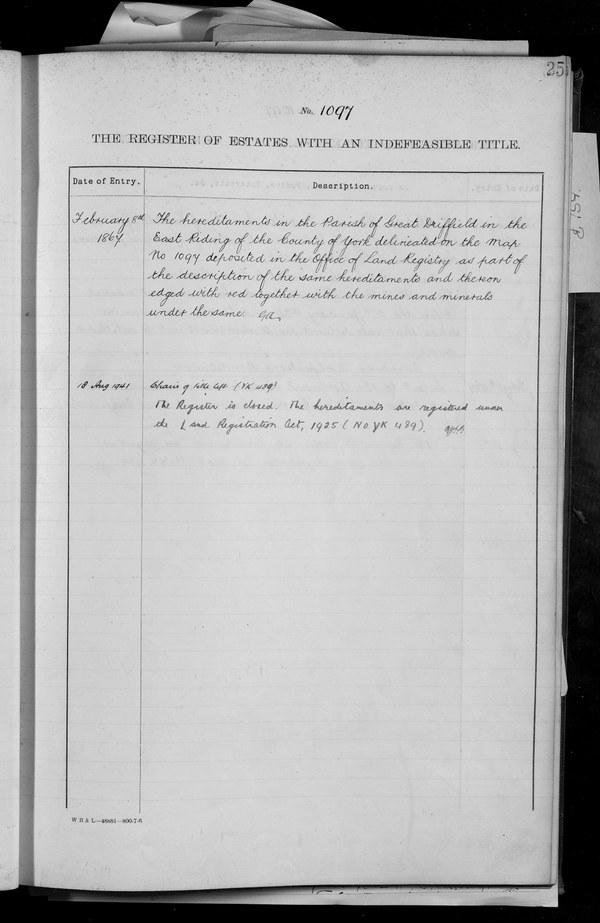 25
No. 1097
THE REGISTER OF ESTATES WITH AN INDEFEASIBLE TITLE.
Date of Entry.
Description.
February 8th
1867
The hereditaments in the Parish of Great Driffield in the
East Riding of the County of York delineated on the Map
No 1097 deposited in the Office of Land Registry as part of
the description of the same hereditaments and thereon
edged with red together with the mines and minerals
under the same.
18 Aug 1941
of title (YK 489)
The Register is closed. The hereditaments are registered under
the Land Registration Act, 1925 (No YK 489).
W B & L—48881—800-7-6